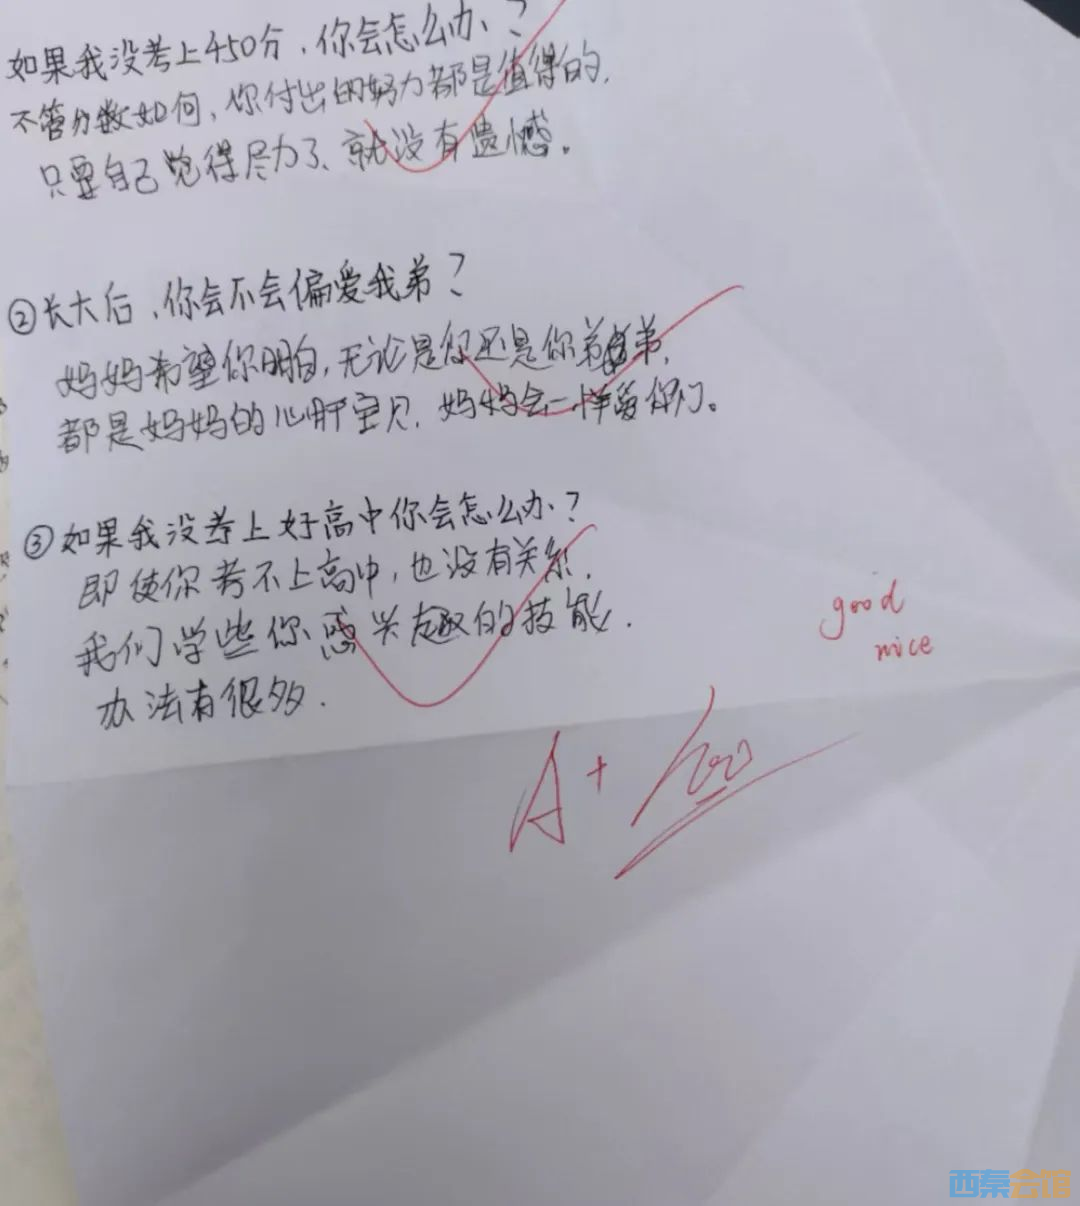 如果我没考上450分，你会怎么办？
不管分数如何，你付出的努力都是值得的，
只要自己觉得尽力了、就没有遗憾。
②长大后，你会不会偏爱我弟？
妈妈希望你明白，无论是你还是你弟弟，
都是妈妈的心肝宝贝，妈妈会一样爱你们。
③如果我没考上好高中你会怎么办？
即使你考不上高中，也没有关系，
我们学些你感兴趣的技能，
办法有很多．
good
nice
A+ 100
西秦会馆